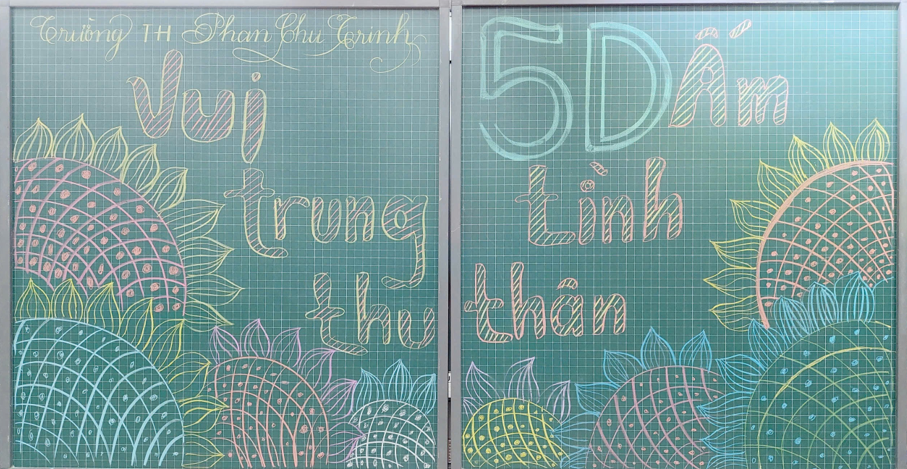 Trường TH Phan Chu Trinh
Vui
trung
thu
5D Ấm
tình
thân